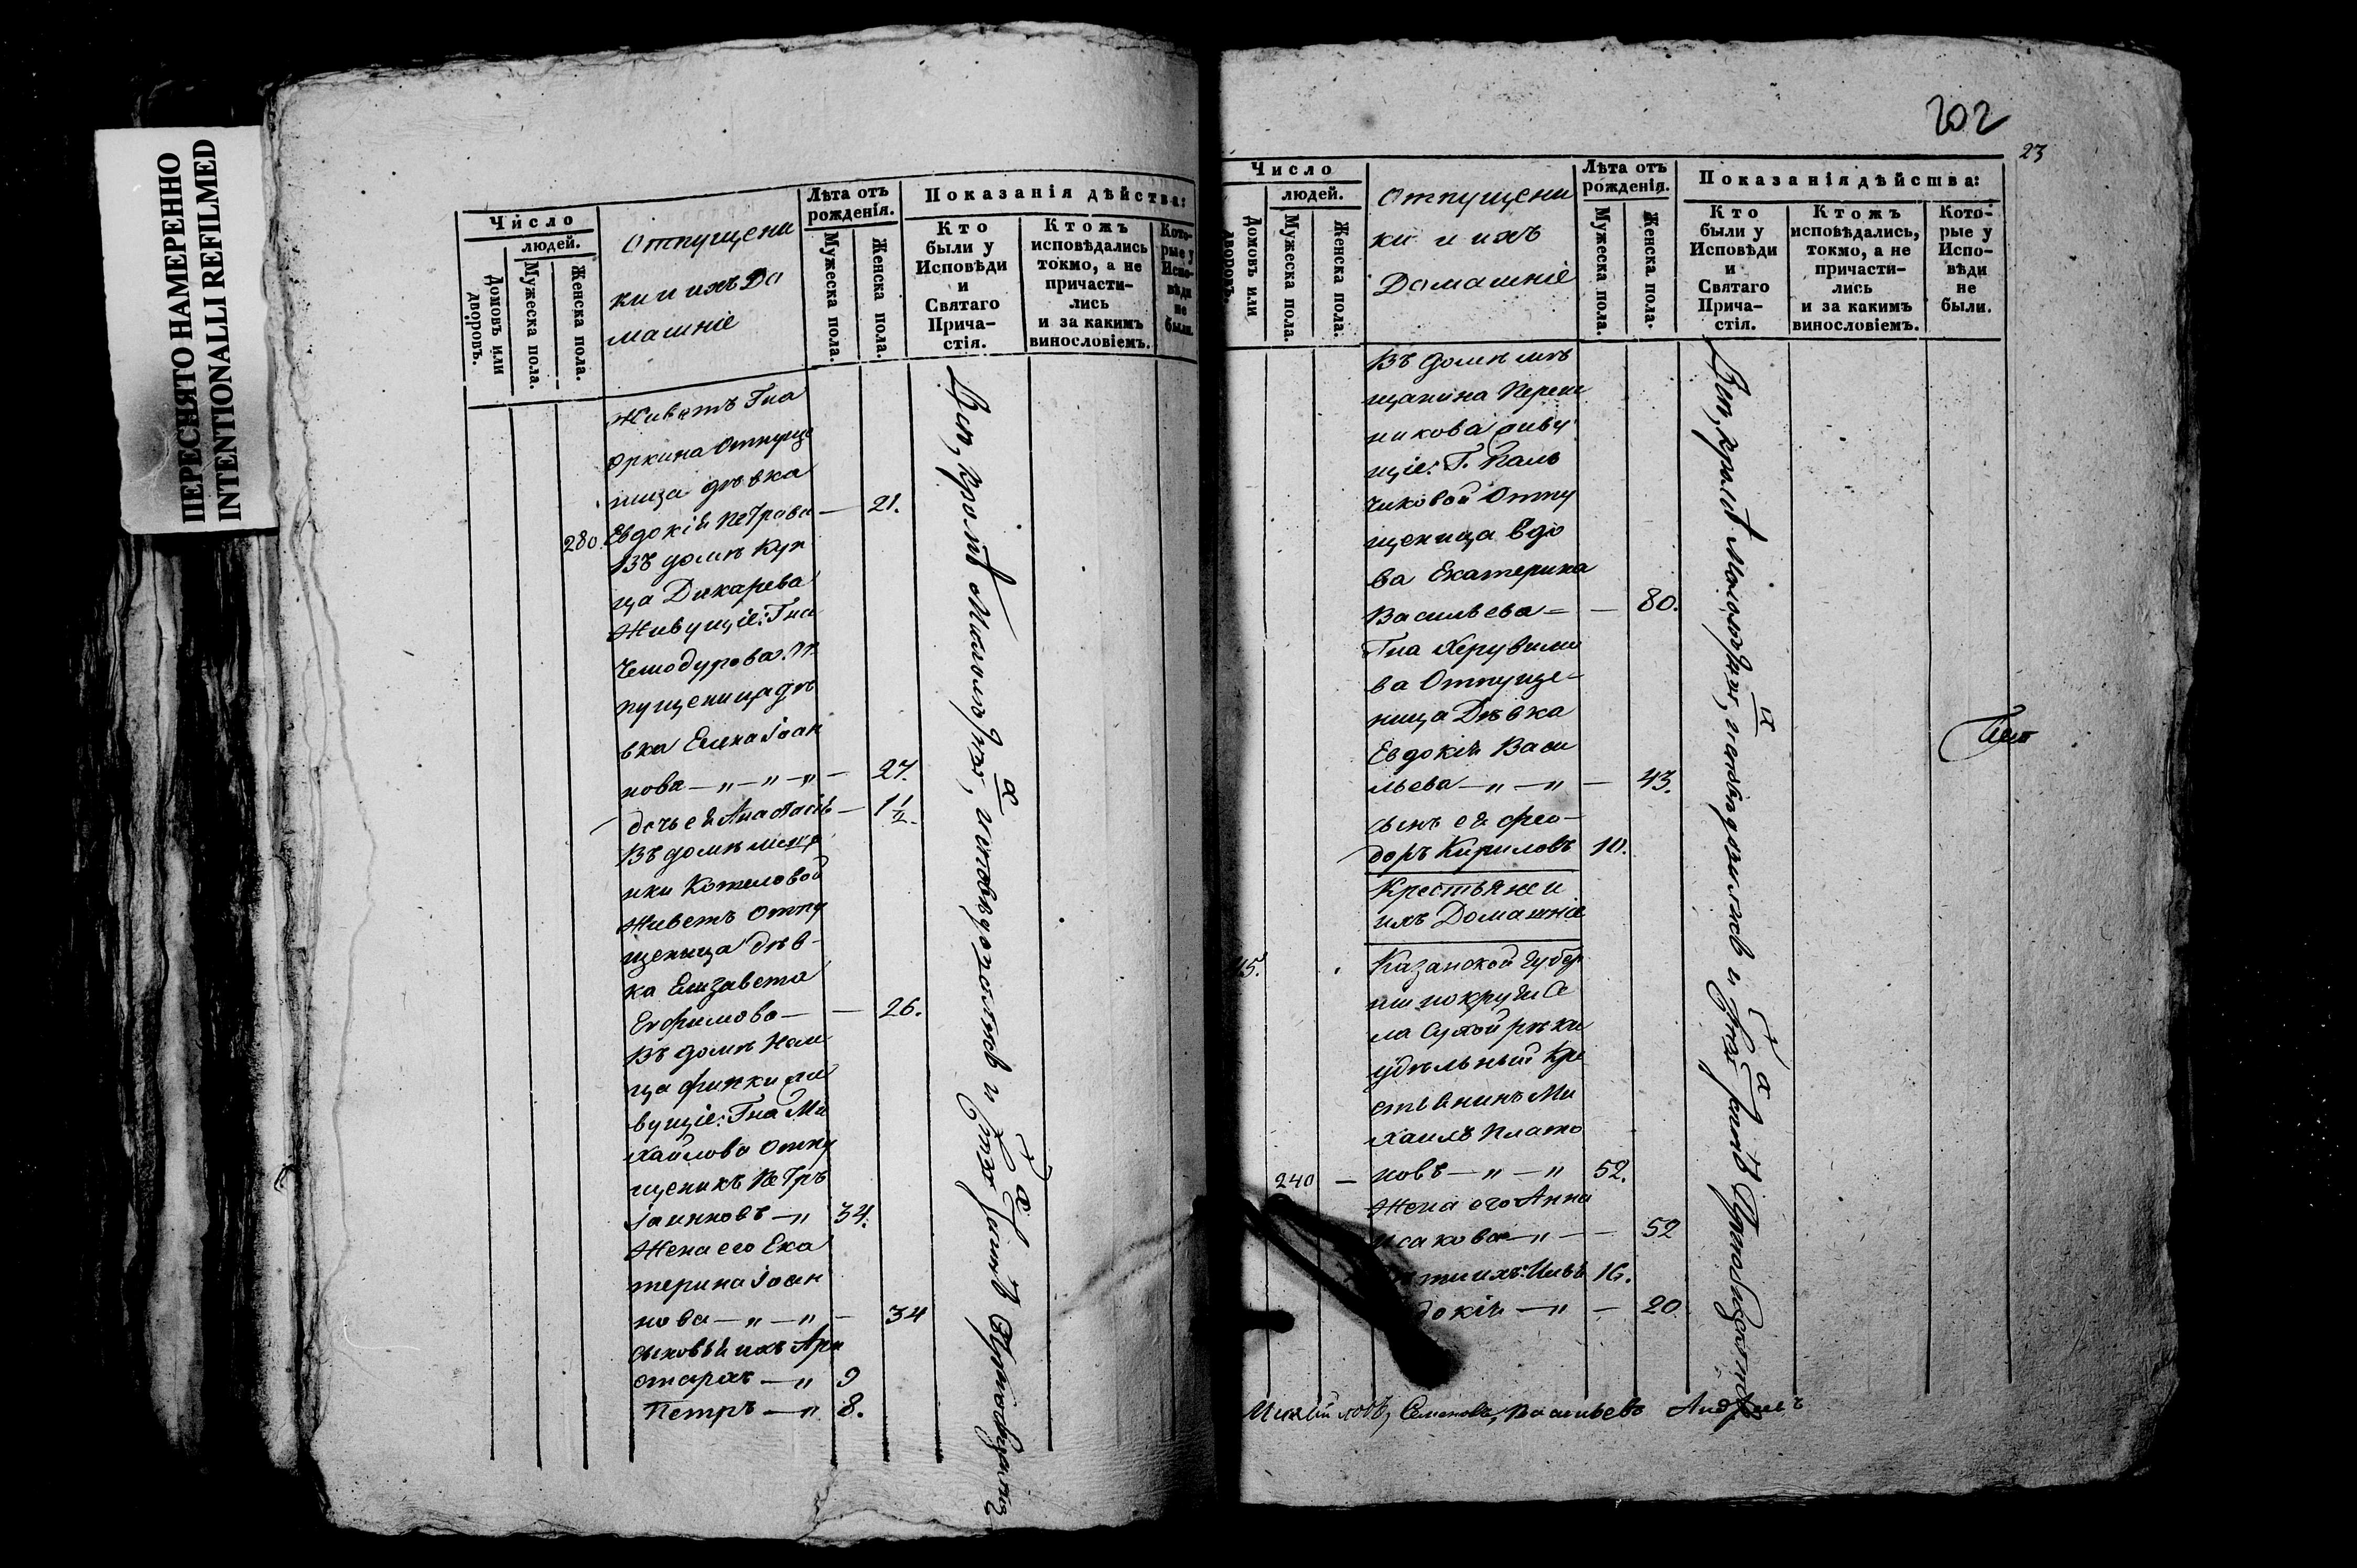 ПЕРЕСНЯТО НАМЕРЕННО
INTENTIONALLI REFILMED
Число
людей.
Домовъ или дворовъ.
Мужеска пола.
Женска пола.
Отпущени
ки и ихъ До
машніе
Лѣта отъ рожденія.
Мужеска пола.
Женска пола.
Показанія дѣйства:
Кто были у Исповѣди и Святаго Прича-стія.
Ктожъ исповѣдались токмо, а не причасти-лись и за какимъ винословіемъ.
Кото-рые у Испо-вѣди не были.
Живетъ Гпа
Отпуще
ница дѣвка
280. Евдокія Петрова — 21.
Въ домѣ Куп
ца Дикарева
Живущіе: Гпа
Чемодурова От
пущеница дѣ
вка Елена Іоан
нова — „ — „ — „ — 27.
дочь ея Анастасія — 1 1/2.
Въ домѣ меща
нки Котеловой
Живетъ Отпу
щеница дѣв-
ка Елизавета
Ефимова — — 26.
Въ домѣ Нѣм
ца жи
вущіе: Гпа Ми
хайлова Отпу
щеникъ Петръ
Іоанновъ — „ 34.
Жена его Ека
терина Іоан
нова — „ — „ — 34
Сыновья ихъ Ари
стархъ — „ 9
Петръ — „ 8.
Всѣ, кромѣ исповѣдались и
202
23
Число
людей.
Домовъ или дворовъ.
Мужеска пола.
Женска пола.
Отпущени
ки и ихъ
Домашніе
Лѣта отъ рожденія.
Мужеска пола.
Женска пола.
Показанія дѣйства:
Кто были у Исповѣди и Святаго Прича-стія.
Ктожъ исповѣдались, токмо, а не причасти-лись и за какимъ винословіемъ.
Кото-рые у Испо-вѣди не были.
Въ домѣ мѣ
щанина
никова живу
щіе: Г. Паль
чиковой Отпу
щеница Вдо
ва Екатерина
Васильева = — 80.
Гпа Херувимо
ва Отпуще-
ница Дѣвка
Евдокія Васи
льева — „ — „ — 43.
Сынъ ея Фео-
доръ Кириловъ 10.
Крестьяне и
ихъ Домашніе
Казанской Губер
ніи округи Се
ла Сухой рѣки
удѣльный Кре
стьянинъ Ми
хаилъ Плато
240 — новъ — „ — „ 52.
Жена его Анна
Исакова — „ — 52
16.
докія — „ — 20
Всѣ, кромѣ исповѣдались и
Семеновъ, Васильевъ